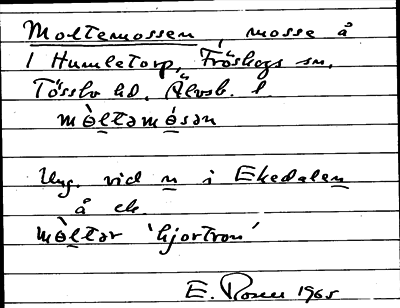 Moltemossen, mosse å
1 Humletorp, Fröskogs sn,
Tössbo hd, Älvsb. l.
mòltəmósən
Ung. vid n i Ekedalen
å ek.
mòltər 'hjortron'
E. Rosen 1965